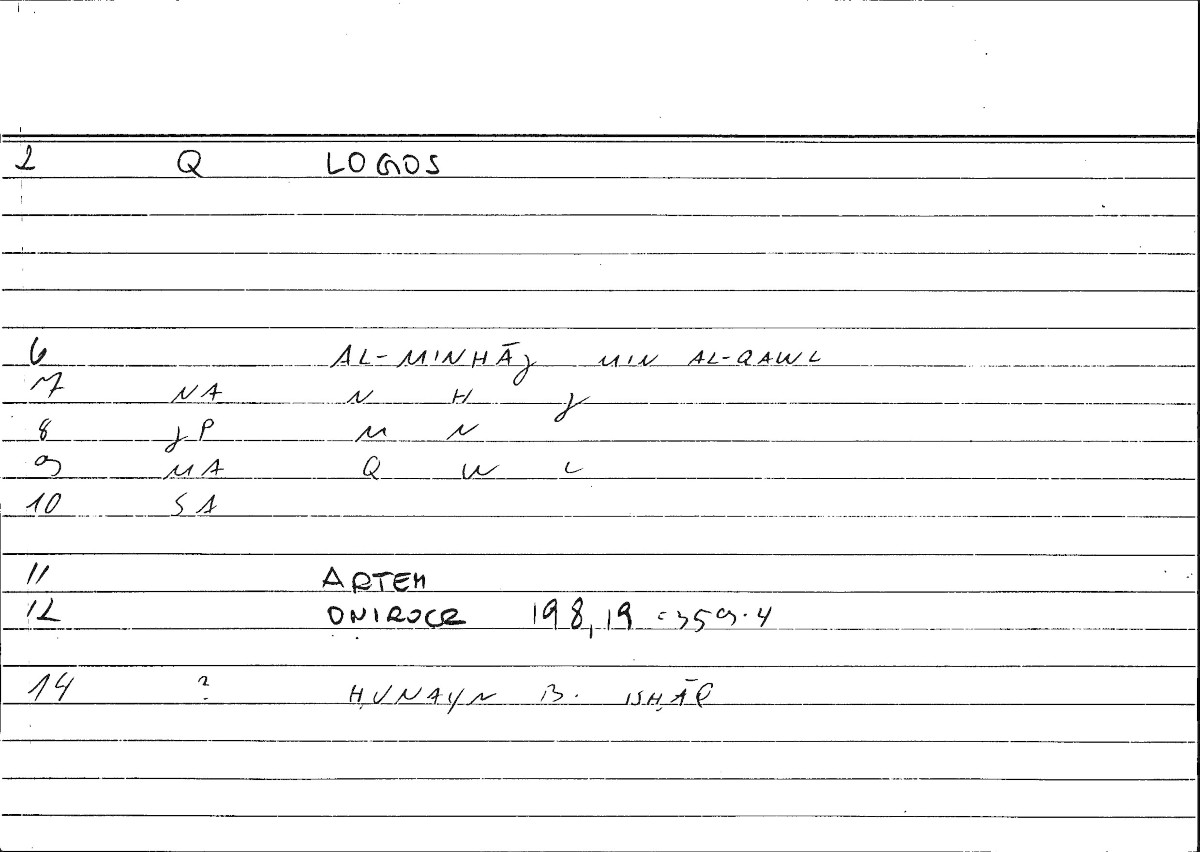 2 Q LOGOS
6 AL-MINHĀJ MIN AL-QAWL
7 NA N H J
8 JP M N
9 MA Q W L
10 SA
11 ARTEM
12 ONIROCR 198,19 = 359.4
14 ? ḤUNAYN B. ISḤĀQ